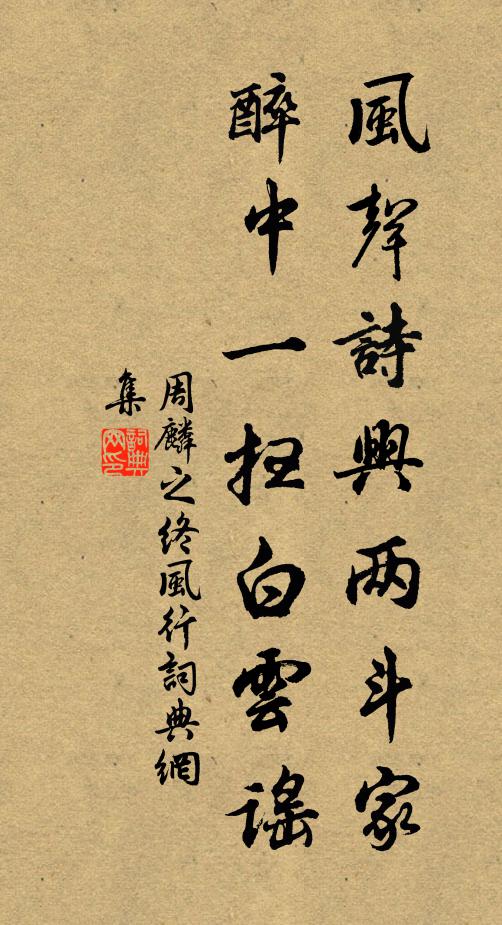 風聲詩興两斗家
醉中一白雲謠
周麟之終風行詞典網
集
詞典
网印